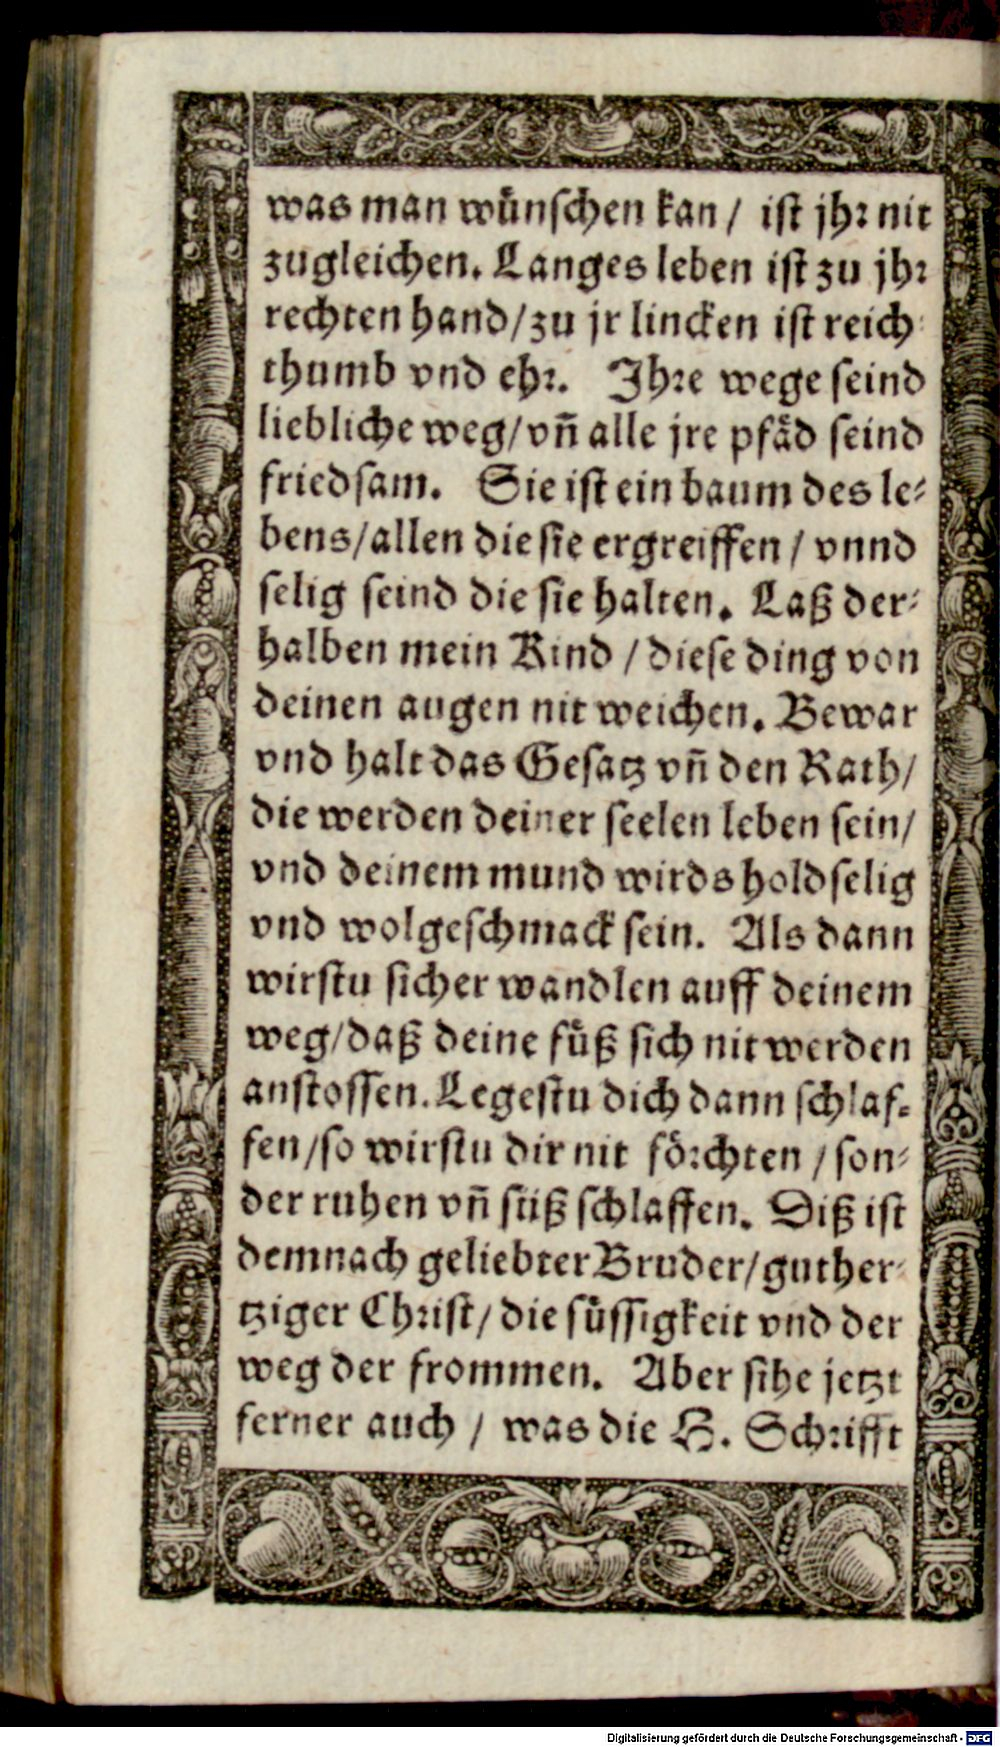 was man wünschen kan / ist jhr nit
zugleichen. Langes leben ist zu jhr
rechten hand/zu jr lincken ist reich-
thumb vnd ehr. Jhre wege seind
liebliche weg/vñ alle jre pfäd seind
friedsam. Sie ist ein baum des le-
bens/allen die sie ergreiffen / vnnd
selig seind die sie halten. Laß der-
halben mein Kind / diese ding von
deinen augen nit weichen. Bewar
vnd halt das Gesatz vñ den Rath/
die werden deiner seelen leben sein/
vnd deinem mund wirds holdselig
vnd wolgeschmack sein. Als dann
wirstu sicher wandlen auff deinem
weg/daß deine füß sich nit werden
anstossen. Legestu dich dann schlaf-
fen/so wirstu dir nit förchten / son-
der ruhen vñ süß schlaffen. Diß ist
demnach geliebter Bruder/guther-
tziger Christ/die süssigkeit vnd der
weg der frommen. Aber sihe jetzt
ferner auch / was die H. Schrifft
Digitalisierung gefördert durch die Deutsche Forschungsgemeinschaft - DFG